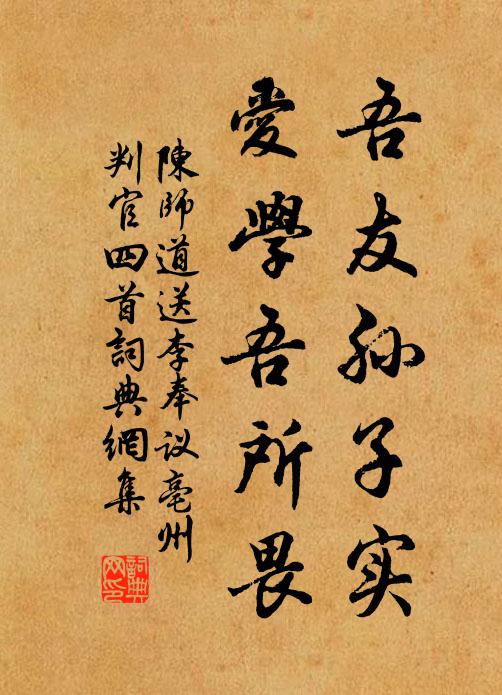 吾友孙子实
爱學吾所畏
陳師道送李奉议亳州
判官四首詞典網集
詞典网印